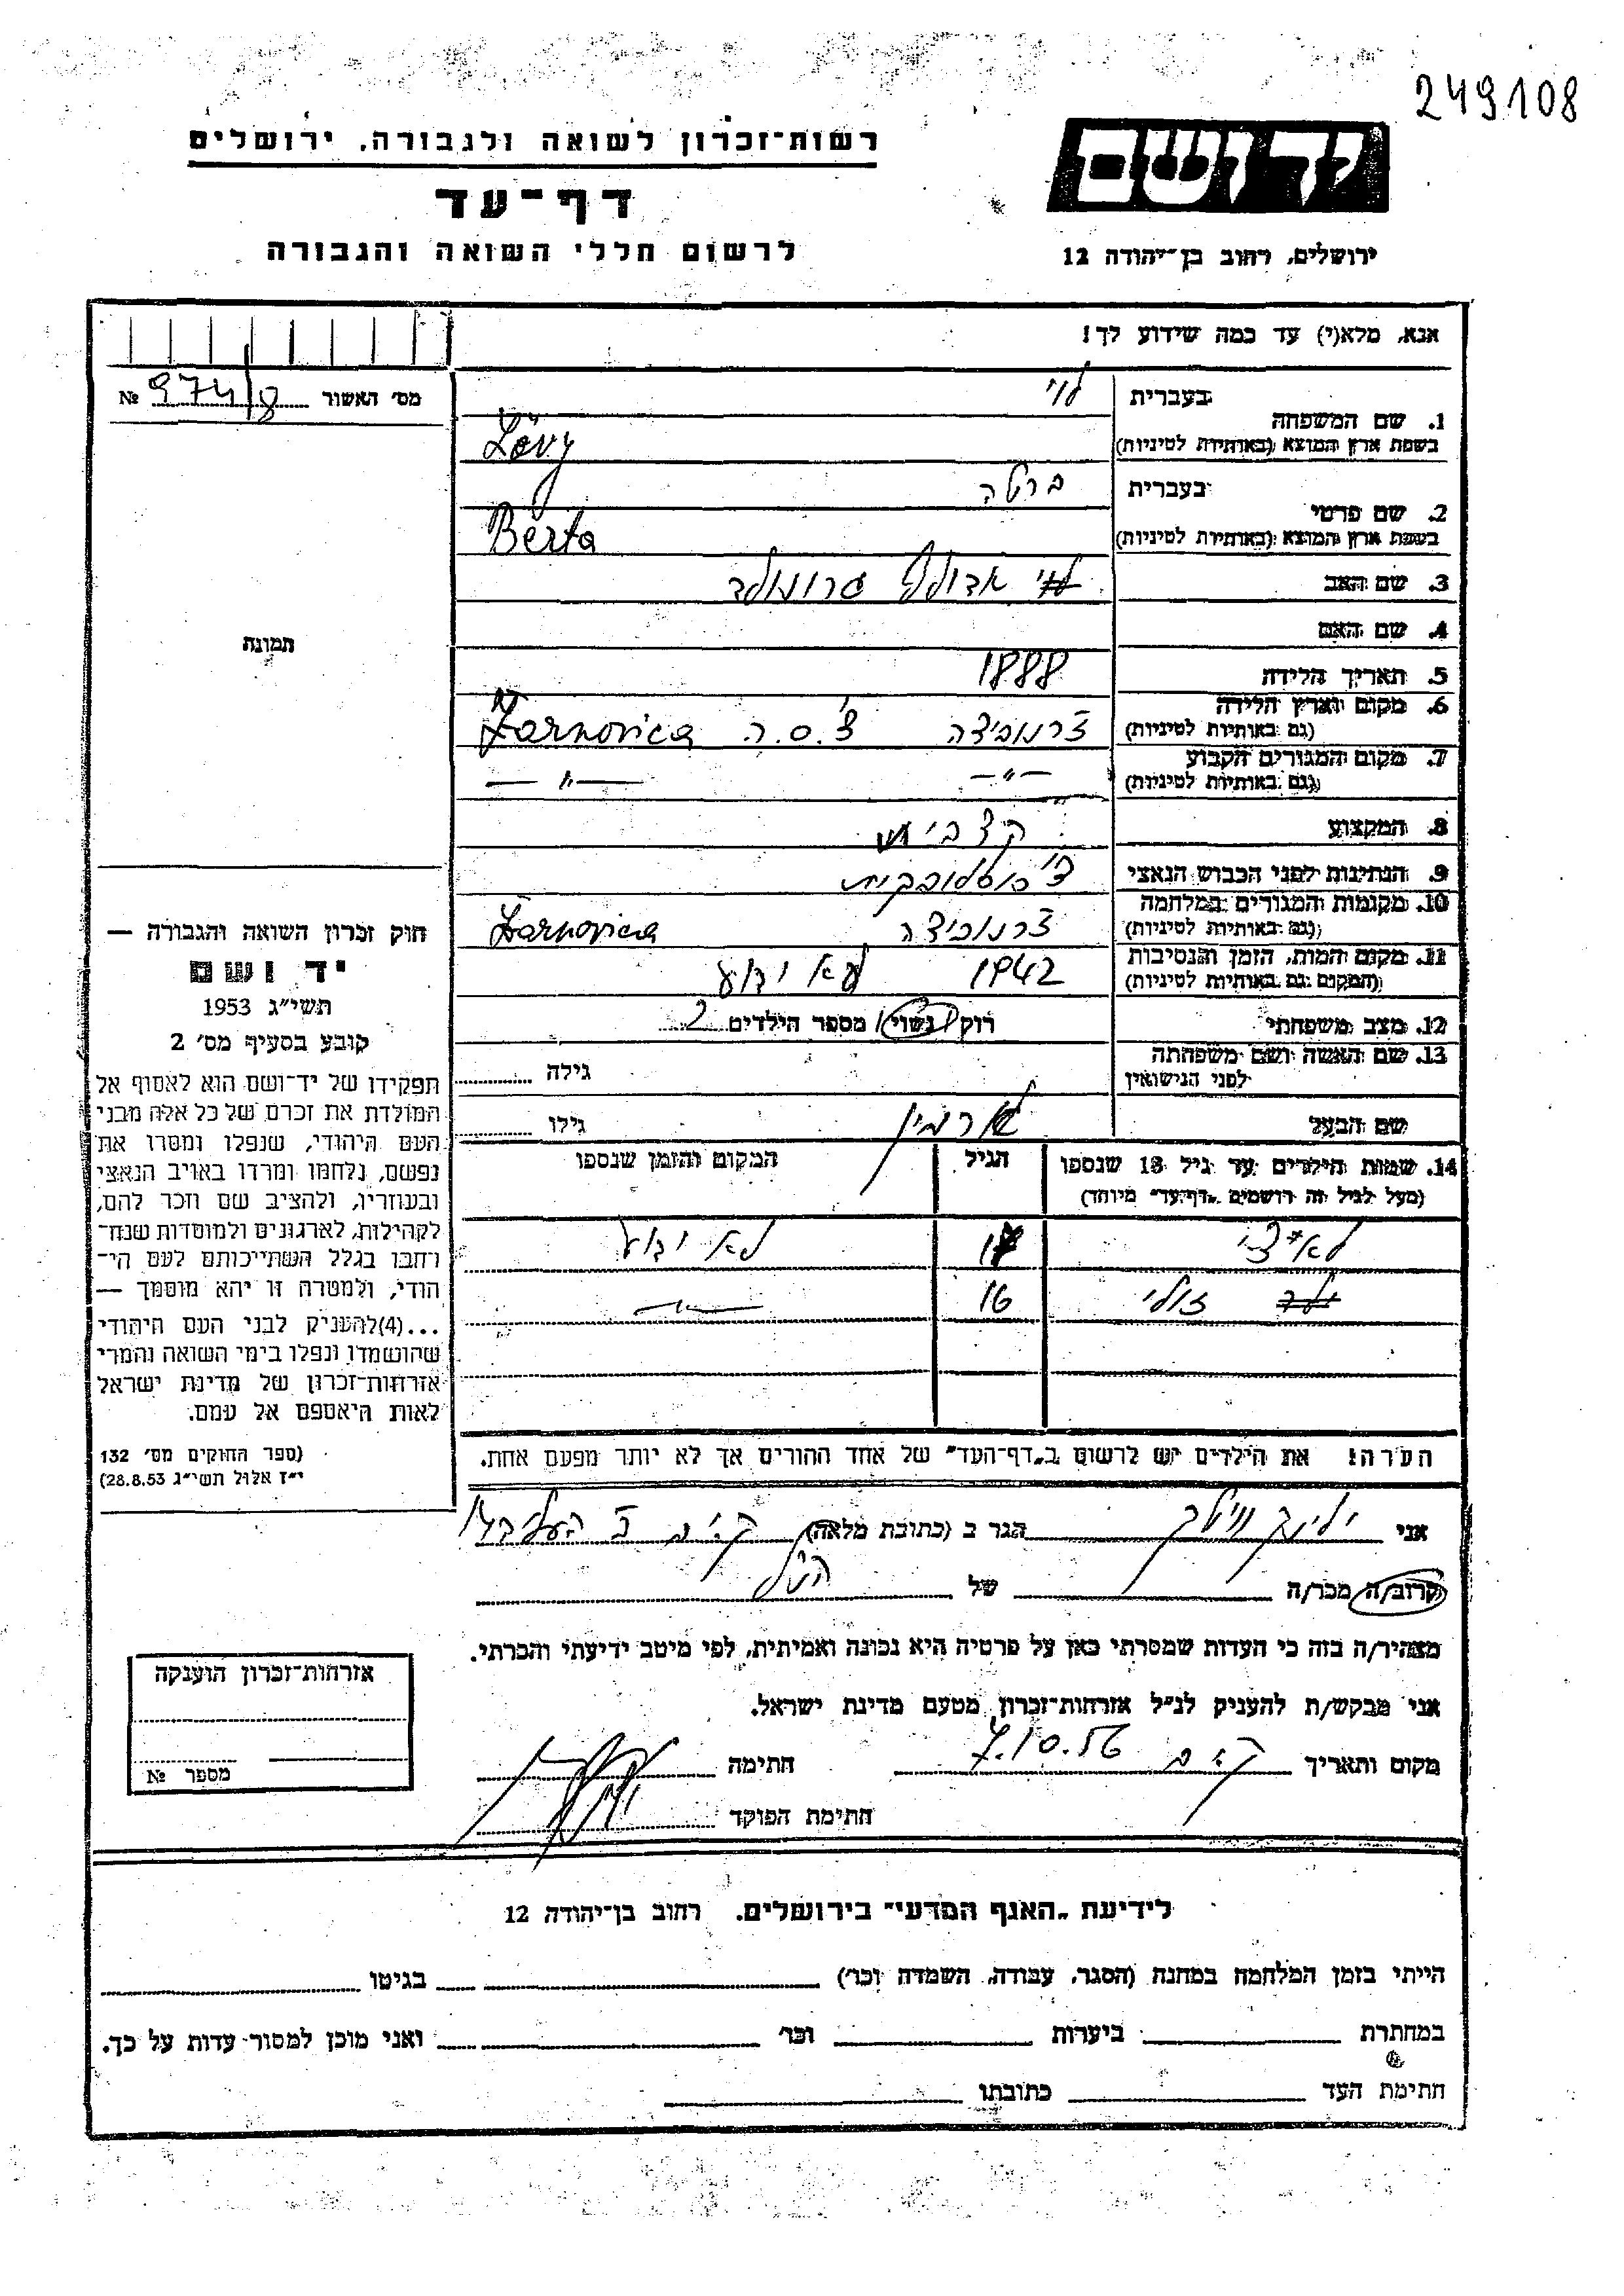 249108
יד ושם
ירושלים, רחוב בן־יהודה 12
רשות־זכרון לשואה ולגבורה, ירושלים
דף־עד
לרשום חללי השואה והגבורה
אנא, מלא(י) עד כמה שידוע לך!
מס׳ האשור № 974/8
בעברית לוי
1. שם המשפחה
בשפת ארץ המוצא (באותיות לטיניות) Lövy
בעברית ברטה
2. שם פרטי
בשפת ארץ המוצא (באותיות לטיניות) Berta
3. שם האב אדולף גרונולד
4. שם האם
5. תאריך הלידה 1888
6. מקום וארץ הלידה
(גם באותיות לטיניות) ז׳רנוביצה צ׳.ס.ר Žarnovica
7. מקום המגורים הקבוע
(גם באותיות לטיניות) —״— —״—
8. המקצוע
9. הנתינות לפני הכבוש הנאצי צ׳כוסלובקית
10. מקומות המגורים במלחמה
(גם באותיות לטיניות) ז׳רנוביצה Žarnovica
11. מקום המות, הזמן והנסיבות
(המקום גם באותיות לטיניות) 1942 לא ידוע
12. מצב משפחתי רוק/נשוי/ מספר הילדים 2
13. שם האשה ושם משפחתה
לפני הנישואין גילה
שם הבעל ארמין גילו
14. שמות הילדים עד גיל 18 שנספו הגיל המקום והזמן שנספו
(מעל לגיל זה רושמים „דף־עד״ מיוחד)
17 לא ידוע
16 —״—
הערה! את הילדים יש לרשום ב„דף־העד״ של אחד ההורים אך לא יותר מפעם אחת.
תמונה
חוק זכרון השואה והגבורה —
יד ושם
תשי״ג 1953
קובע בסעיף מס׳ 2
תפקידו של יד־ושם הוא לאסוף אל
המולדת את זכרם של כל אלה מבני
העם היהודי, שנפלו ומסרו את
נפשם, נלחמו ומרדו באויב הנאצי
ובעוזריו, ולהציב שם וזכר להם,
לקהילות, לארגונים ולמוסדות שנח־
רחבו בגלל השתייכותם לעם הי־
הודי, ולמטרה זו יהא מוסמך —
...(4)להעניק לבני העם היהודי
שהושמדו ונפלו בימי השואה והמרי
אזרחות־זכרון של מדינת ישראל
לאות היאספם אל עמם.
(ספר החוקים מס׳ 132
י״ז אלול תשי״ג 28.8.53)
אני הגר ב (כתובת מלאה)
קרוב/ה מכר/ה של
מצהיר/ה בזה כי העדות שמסרתי כאן על פרטיה היא נכונה ואמיתית, לפי מיטב ידיעתי והכרתי.
אני מבקש/ת להעניק לנ״ל אזרחות־זכרון מטעם מדינת ישראל.
מקום ותאריך 7.10.56 חתימה
חתימת הפוקד
אזרחות־זכרון הוענקה
מספר №
לידיעת „האגף המדעי״ בירושלים. רחוב בן־יהודה 12
הייתי בזמן המלחמה במחנה (הסגר, עבודה, השמדה וכר׳) בגיטו
במחתרת ביערות וכר׳ ואני מוכן למסור עדות על כך.
חתימת העד כתובתו